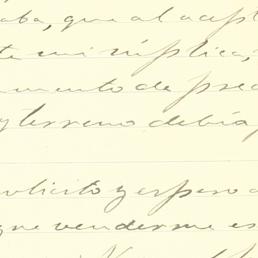 aba, que al acept
te mi súplica,
amento de prec
y terreno debía
solicito y espero
que venderme es